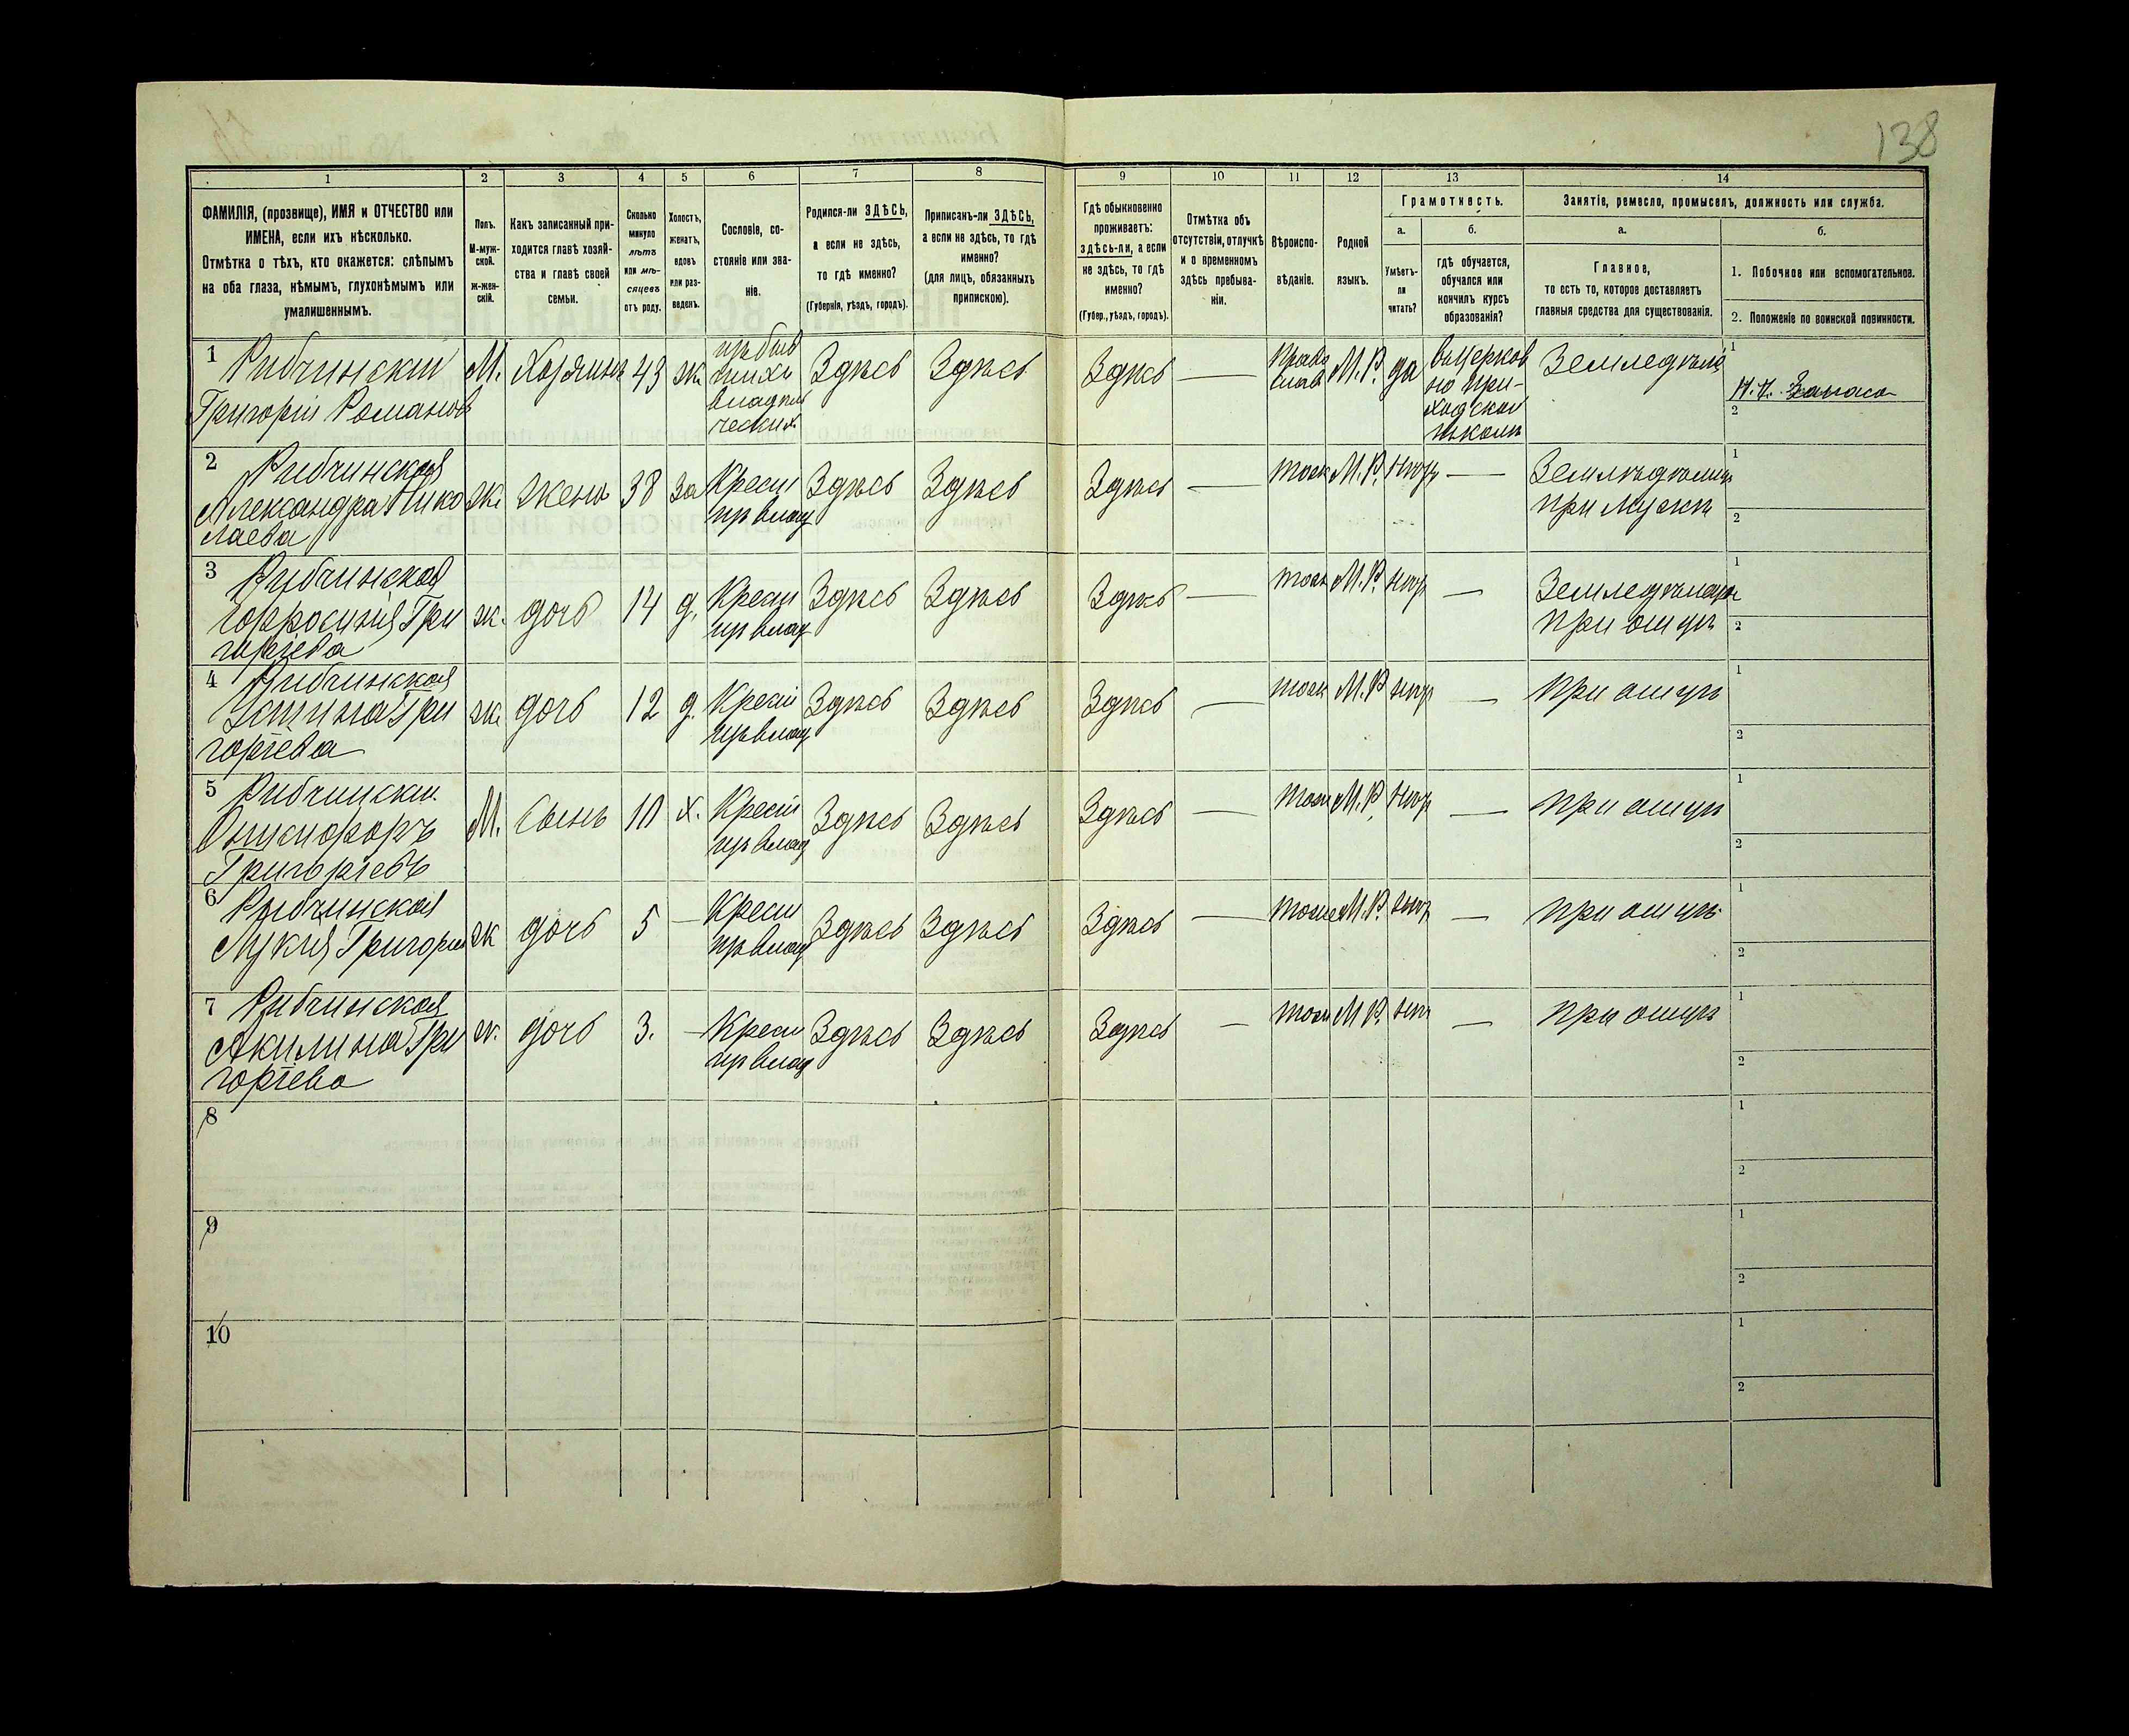 138
1 2 3 4 5 6 7 8 9 10 11 12 13 14
ФАМИЛІЯ, (прозвище), ИМЯ и ОТЧЕСТВО или
ИМЕНА, если ихъ нѣсколько.
Отмѣтка о тѣхъ, кто окажется: слѣпымъ
на оба глаза, нѣмымъ, глухонѣмымъ или
умалишеннымъ.
Полъ.
М-муж-
ской.
ж-жен-
скій.
Какъ записанный при-
ходится главѣ хозяй-
ства и главѣ своей
семьи.
Сколько
минуло
лѣтъ
или мѣ-
сяцевъ
отъ роду.
Холостъ,
женатъ,
вдовъ
или раз-
веденъ.
Сословіе, со-
стояніе или зва-
ніе.
Родился-ли ЗДѢСЬ,
а если не здѣсь,
то гдѣ именно?
(Губернія, уѣздъ, городъ).
Приписанъ-ли ЗДѢСЬ,
а если не здѣсь, то гдѣ
именно?
(для лицъ, обязанныхъ
припискою).
Гдѣ обыкновенно
проживаетъ:
здѣсь-ли, а если
не здѣсь, то гдѣ
именно?
(Губер., уѣздъ, городъ).
Отмѣтка объ
отсутствіи, отлучкѣ
и о временномъ
здѣсь пребыва-
ніи.
Вѣроиспо-
вѣданіе.
Родной
языкъ.
Грамотность.
а.
Умѣетъ-
ли
читать?
б.
гдѣ обучается,
обучался или
кончилъ курсъ
образованія?
Занятіе, ремесло, промыселъ, должность или служба.
а.
Главное,
то есть то, которое доставляетъ
главныя средства для существованія.
б.
1. Побочное или вспомогательное.
2. Положеніе по воинской повинности.
1 Рибчинскій
Григорій Романов
М. Хозяинъ 43 ж.
Здѣсь Здѣсь Здѣсь —
Право
слав
М.Р. да
въ церков
но при-
ходской
школѣ
1
2
2 Рибчинская
Александра Нико
лаева
ж. жена 38 за
Крест
Здѣсь Здѣсь Здѣсь — тож М.Р. нѣтъ —
при мужѣ
1
2
3 Рибчинская
Ефросинія Гри
горіева
ж. дочь 14 д.
Крест
Здѣсь Здѣсь Здѣсь — тож М.Р. нѣтъ —
при отцѣ
1
2
4 Рибчинская
Устина Гри
горіева
ж. дочь 12 д.
Крест
Здѣсь Здѣсь Здѣсь — тож М.Р. нѣтъ — при отцѣ
1
2
5 Рибчинскій
Онисифоръ
Григоріевъ
М. Сынъ 10 х.
Крест
Здѣсь Здѣсь Здѣсь — тож М.Р. нѣтъ — при отцѣ
1
2
6 Рибчинская
Лукія
ж дочь 5 —
Крест
Здѣсь Здѣсь Здѣсь — тоже М.Р. нѣтъ — при отцѣ
1
2
7 Рибчинская
Акилина Гри
горіева
ж. дочь 3. —
Крест
Здѣсь Здѣсь Здѣсь — тож М.Р. нѣтъ — при отцѣ
1
2
8
1
2
9
1
2
10
1
2